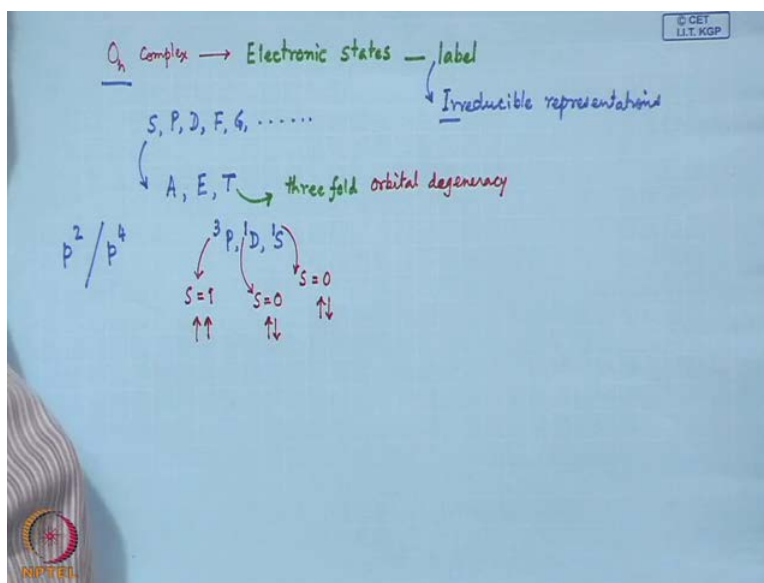 © CET
I.I.T. KGP
Oh complex → Electronic states — label
Irreducible representations
S, P, D, F, G, ......
A, E, T → three fold orbital degeneracy
p² / p⁴
³P, ¹D, ¹S
S=1 S=0 S=0
↑↑ ↑↓ ↑↓
NPTEL